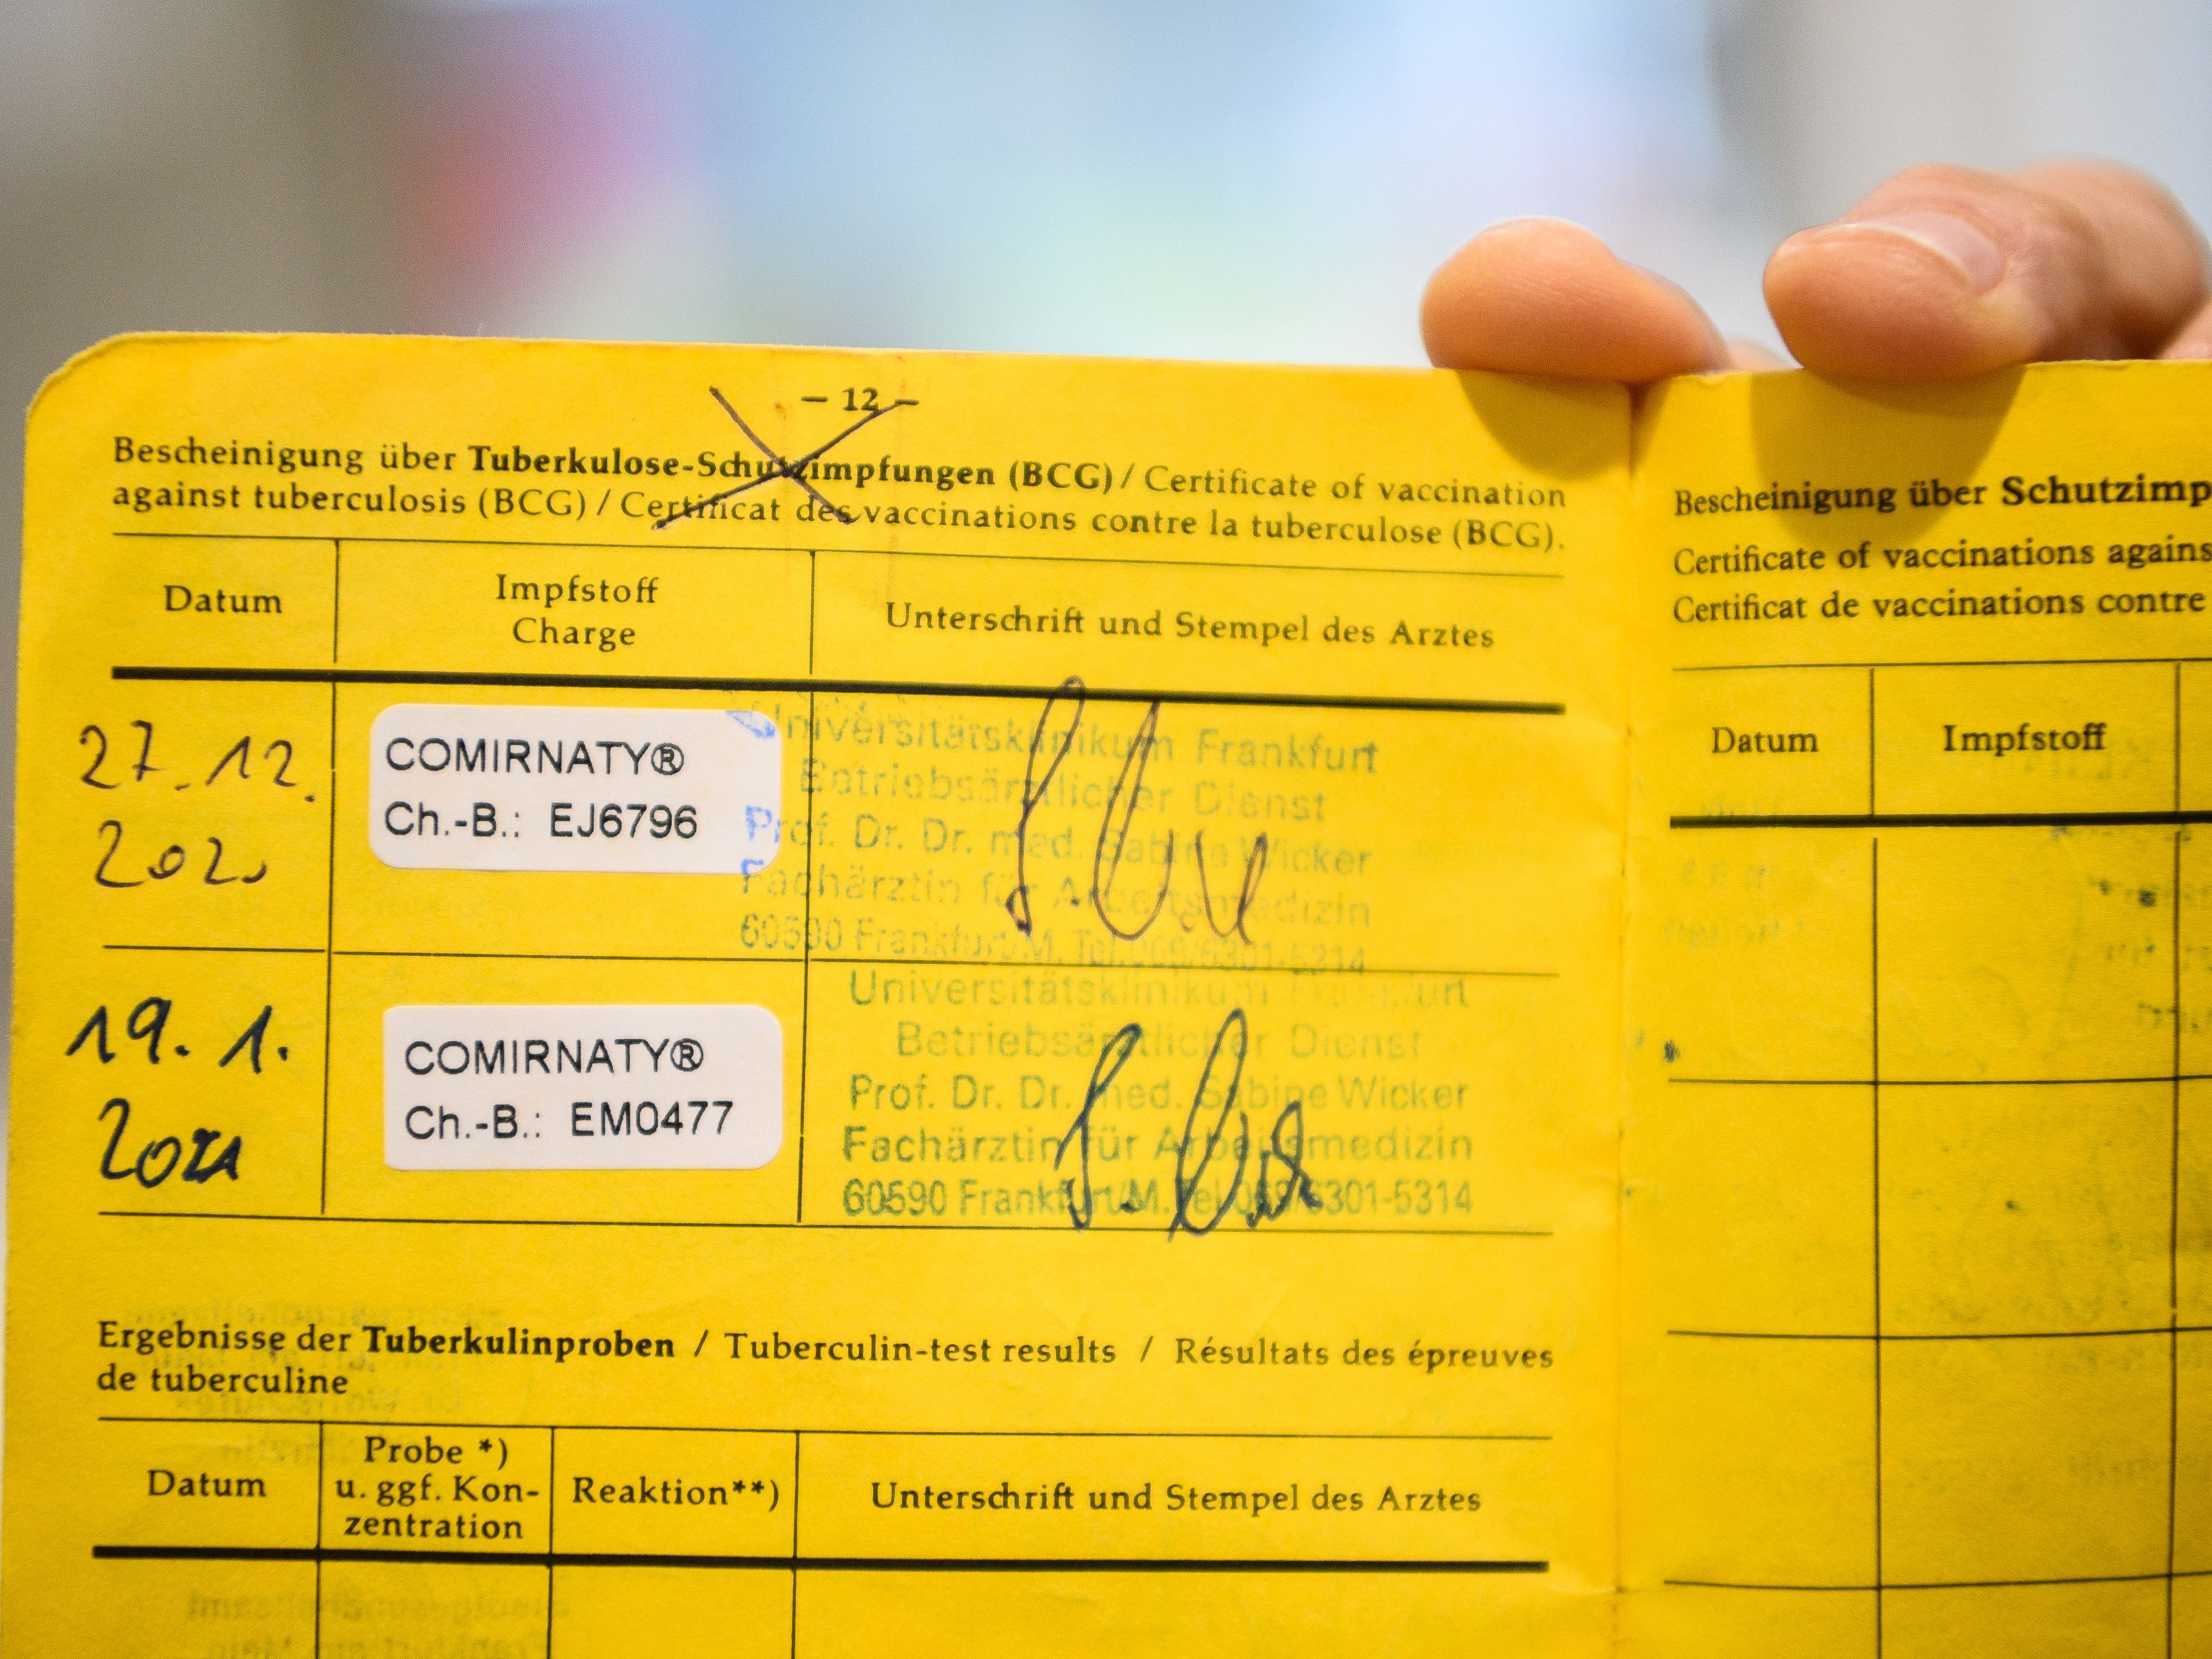 – 12 –
Bescheinigung über Tuberkulose-Schutzimpfungen (BCG) / Certificate of vaccination
against tuberculosis (BCG) / Certificat des vaccinations contre la tuberculose (BCG).
Datum
Impfstoff
Charge
Unterschrift und Stempel des Arztes
27.12.
2020
COMIRNATY®
Ch.-B.: EJ6796
Universitätsklinikum Frankfurt
Betriebsärztlicher Dienst
Prof. Dr. Dr. med. Sabine Wicker
Fachärztin für Arbeitsmedizin
60590 Frankfurt/M. Tel.069/6301-5314
19. 1.
2021
COMIRNATY®
Ch.-B.: EM0477
Universitätsklinikum Frankfurt
Betriebsärztlicher Dienst
Prof. Dr. Dr. med. Sabine Wicker
Fachärztin für Arbeitsmedizin
60590 Frankfurt/M. Tel.069/6301-5314
Ergebnisse der Tuberkulinproben / Tuberculin-test results / Résultats des épreuves
de tuberculine
Datum
Probe *)
u. ggf. Kon-
zentration
Reaktion**)
Unterschrift und Stempel des Arztes
Bescheinigung über Schutzimp
Certificate of vaccinations agains
Certificat de vaccinations contre
Datum
Impfstoff